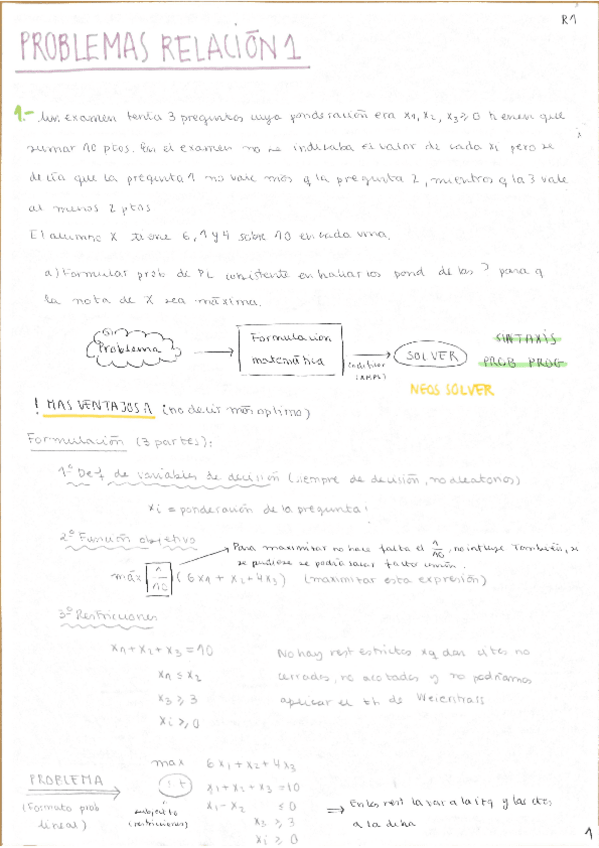 R1
PROBLEMAS RELACIÓN 1
1.- Un examen tenía 3 preguntas cuya ponderación era x1, x2, x3 ≥ 0 tienen que
sumar 10 ptos. En el examen no se indicaba el valor de cada xi pero se
decía que la pregunta 1 no vale más q la pregunta 2, mientras q la 3 vale
al menos 2 ptos
El alumno X tiene 6, 1 y 4 sobre 10 en cada una.
a) Formular prob de PL consistente en hallar las pond de las ? para q
la nota de X sea máxima.
Problema
Formulación
matemática
(AMPL)
SOLVER
SINTAXIS
PROB PROG
NEOS SOLVER
! MAS VENTAJOSA (no decir más óptimo)
Formulación (3 partes):
1º Def de variables de decisión (siempre de decisión, no aleatorios)
xi = ponderación de la pregunta i
2º Función objetivo
Para maximizar no hace falta el 1/10, no influye. También, si
se pudiese se podría sacar factor común.
máx 1/10 (6x1 + x2 + 4x3) (maximizar esta expresión)
3º Restricciones
x1 + x2 + x3 = 10
x1 ≤ x2
x3 ≥ 3
xi ≥ 0
No hay rest estrictas xq dan ctes no
cerrados, no acotados y no podríamos
aplicar el th de Weierstrass
PROBLEMA
(Formato prob
lineal)
max 6x1 + x2 + 4x3
subjeto
(restricciones)
x1 + x2 + x3 = 10
x1 - x2 ≤ 0
x3 ≥ 3
xi ≥ 0
⇒ En las rest la var a la izq y las ctes
a la dcha
1